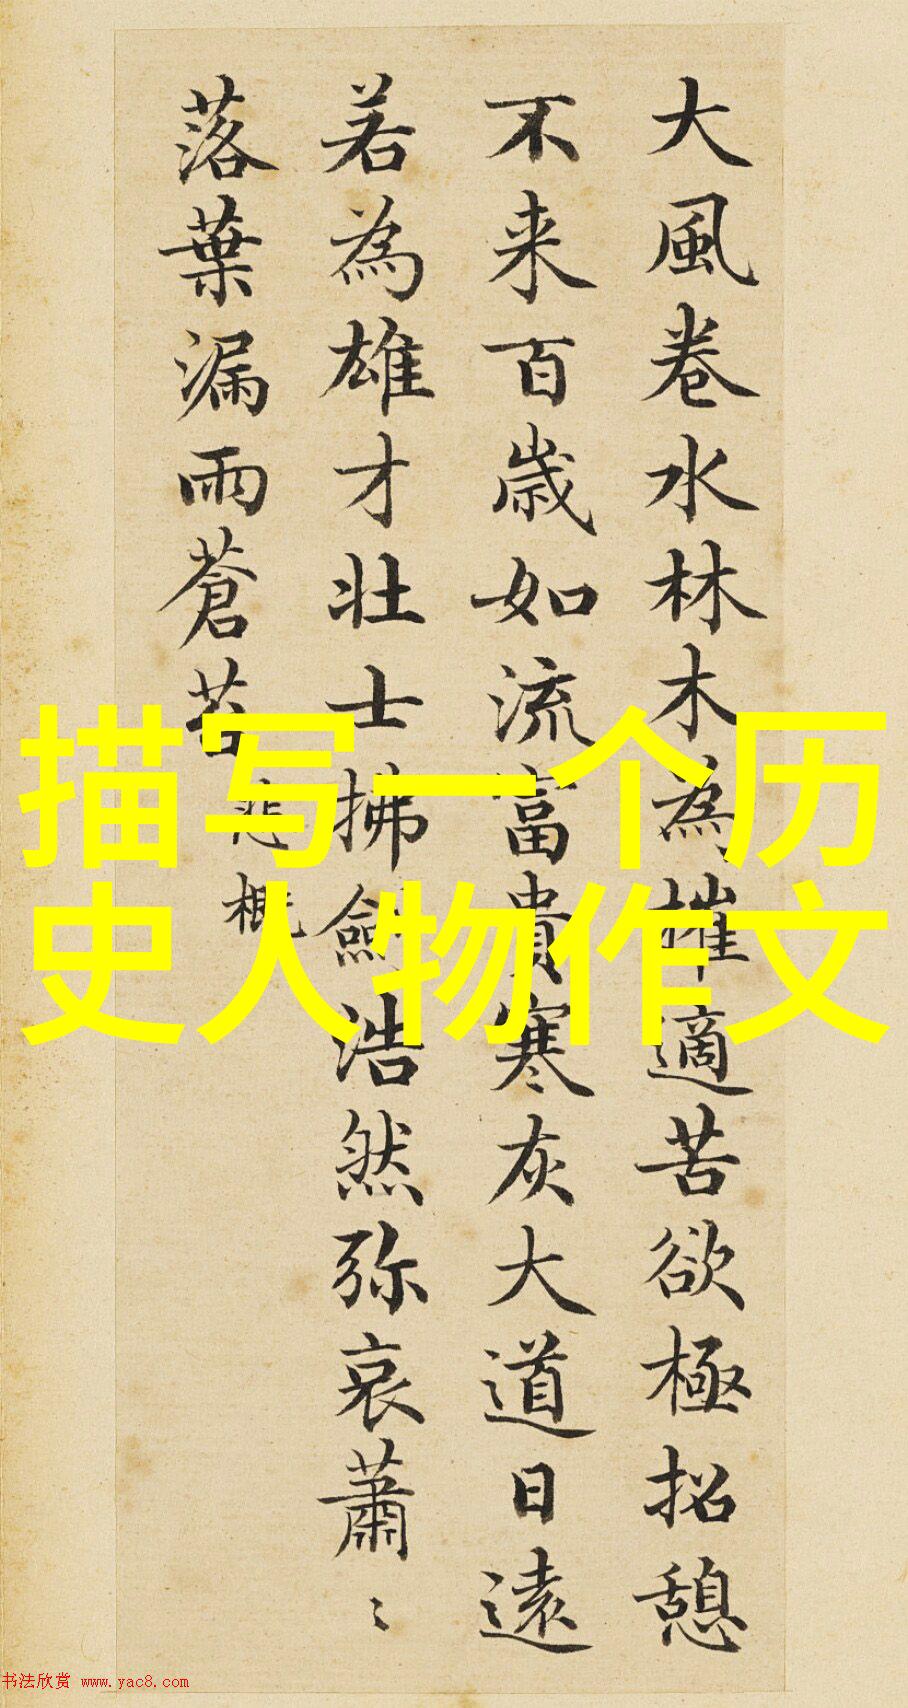 大風卷水林木為摧適苦欲極招憩
不来百歲如流富貴寒灰大道日遠
若為雄才壯士拂劍浩然弥哀蕭〻
落葉漏雨蒼苔
悲慨
描写一个历
史人物作文
书法欣赏 www.yac8.com